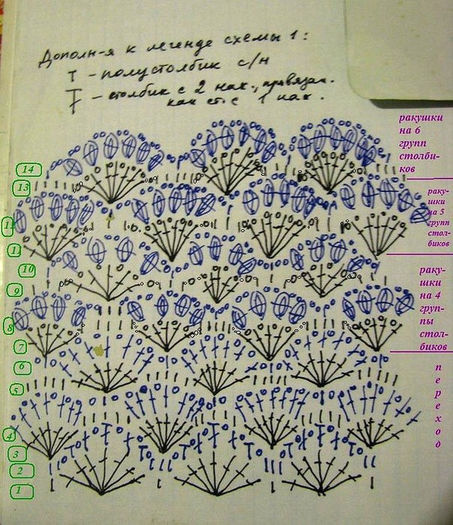 Дополн-я к легенде схемы 1:
Т - полустолбик с/н
- столбик с 2 нак., провязан.
как ст. с 1 нак.
ракушки
на 6
групп
столби-
ков
14
13
раку-
шки
на 5
групп
стол-
биков
11
10
9
раку-
шки
на 4
груп-
пы
стол-
биков
8
7
6
5
переход
4
3
2
1